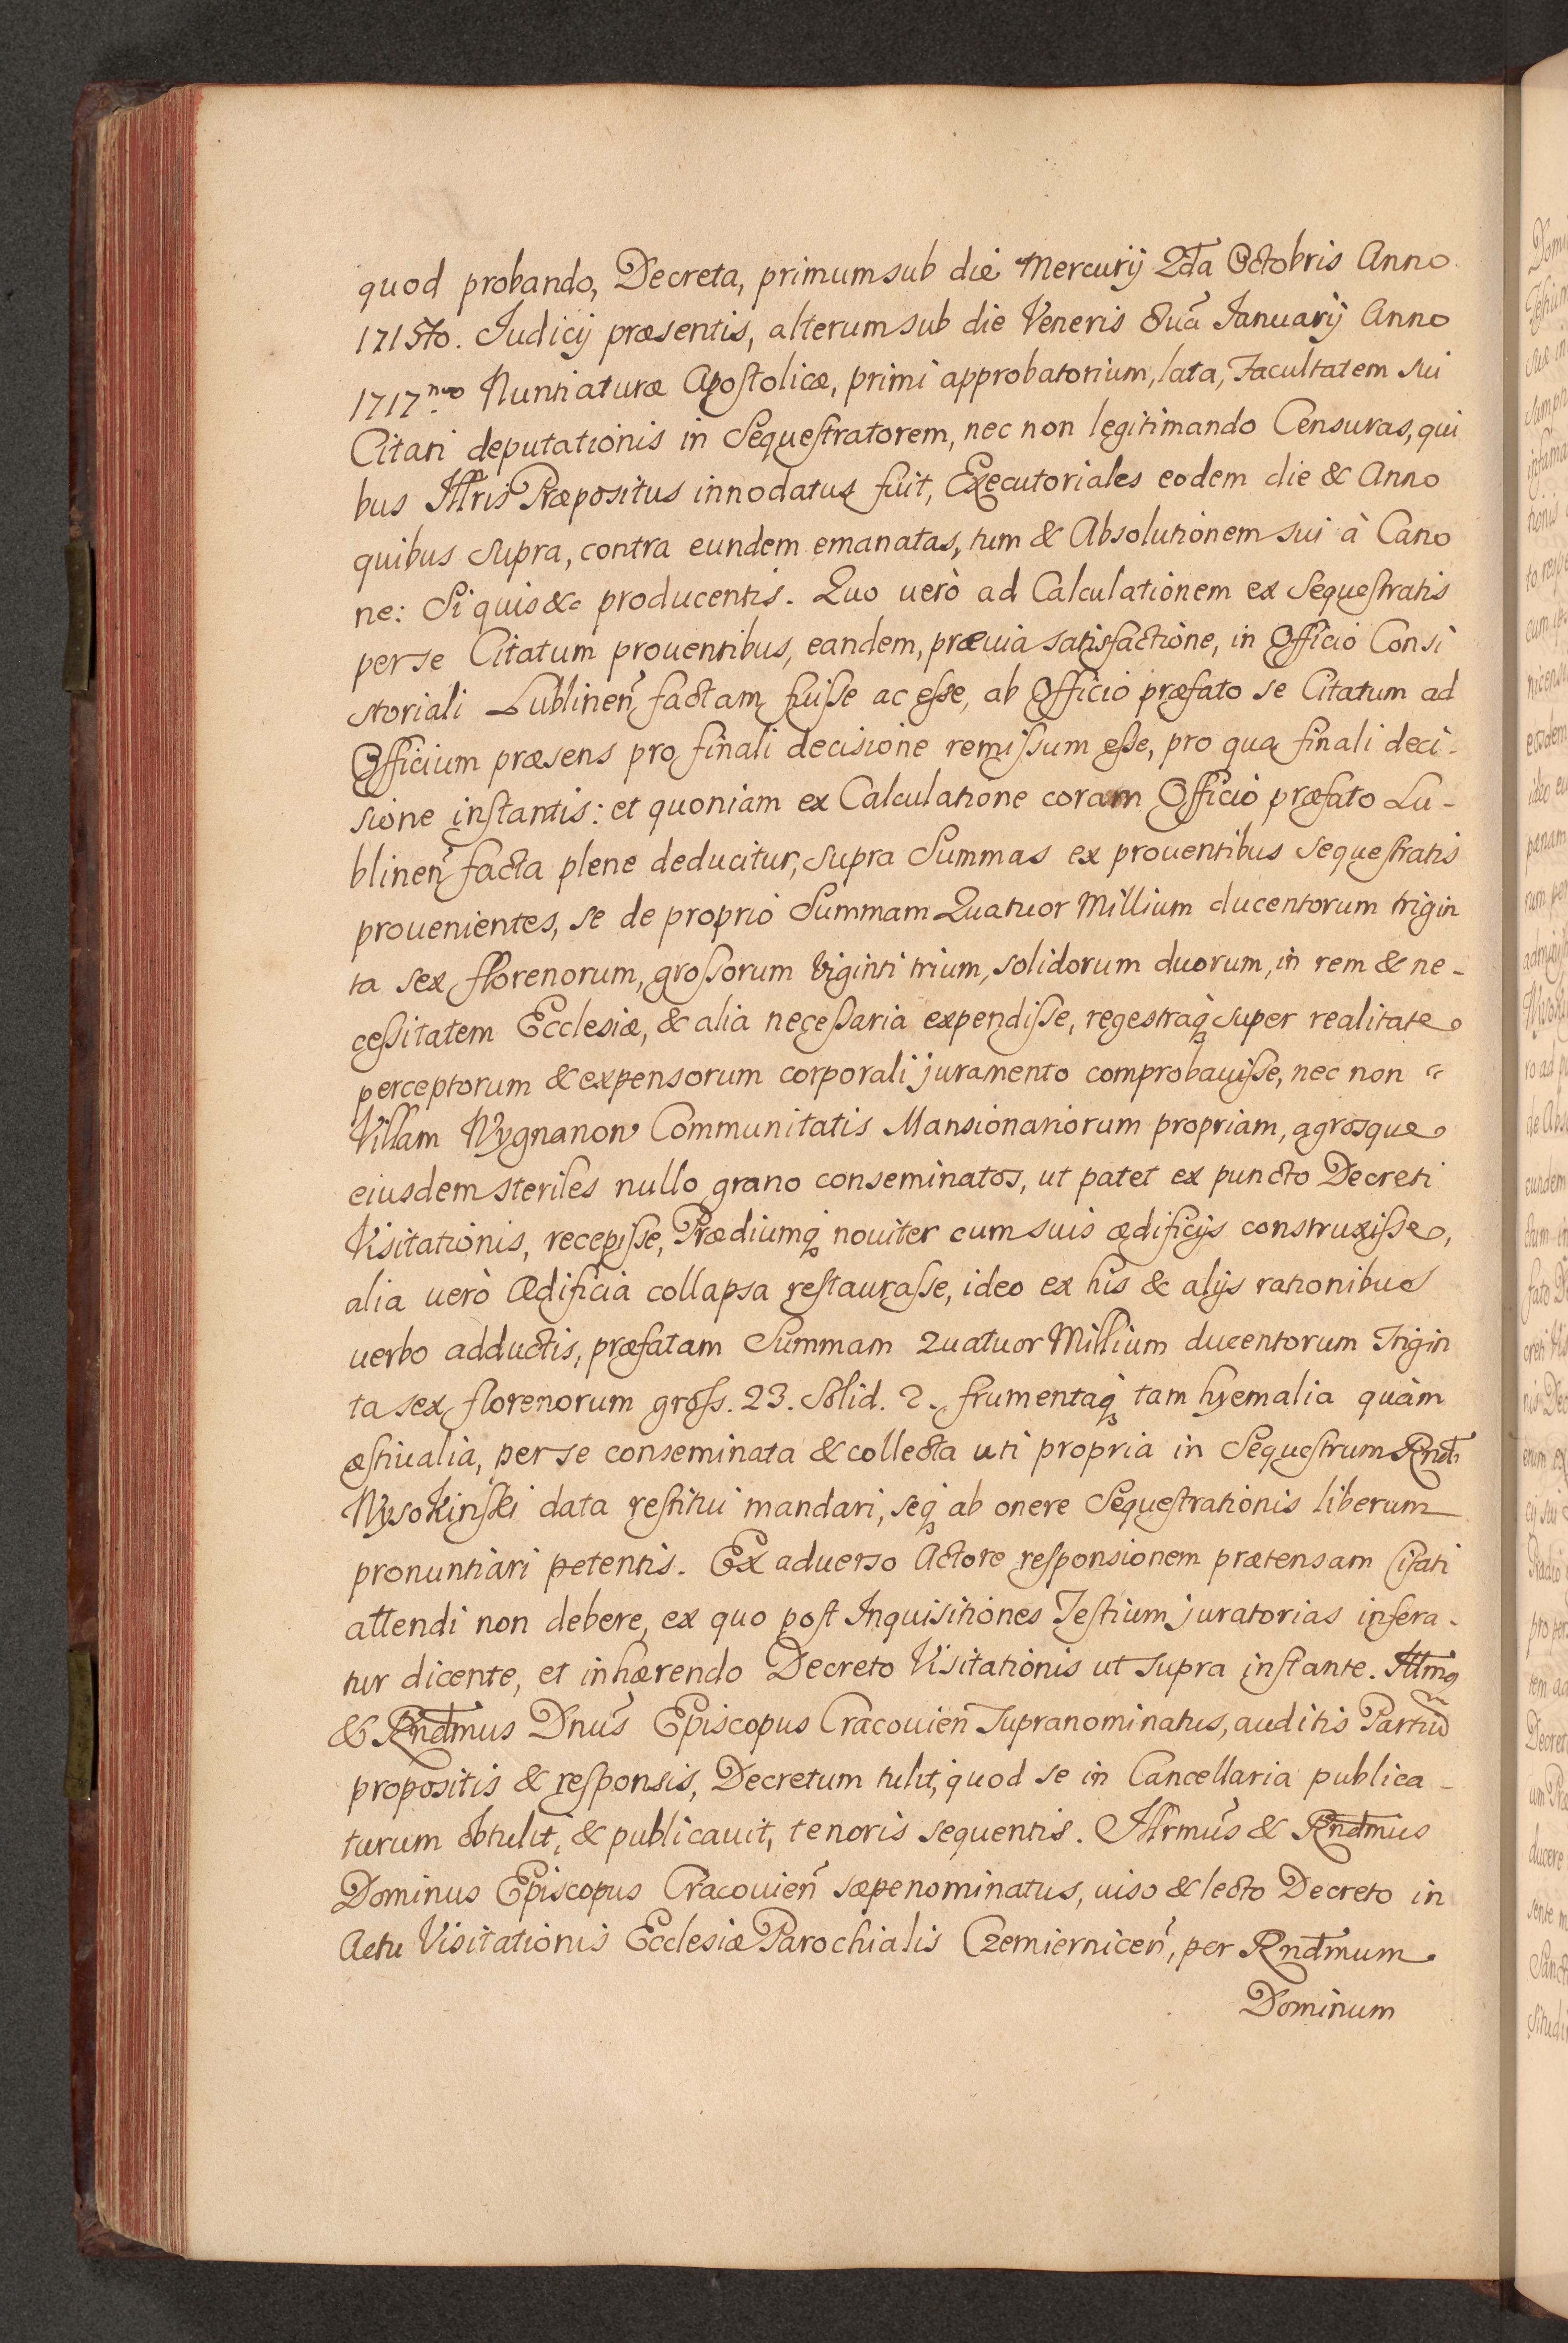 quod probando, Decreta, primum sub die Mercurij 2da Octobris Anno
1715to. Judicij præsentis, alterum sub die Veneris 8uã Januarij Anno
1717mo Nuntiaturæ Apostolicæ, primi approbatorium, lata, Facultatem sui
Citati deputationis in Sequestratorem, nec non legitimando Censuras, qui
bus Illris Præpositus innodatus fuit, Executoriales eodem die & Anno
quibus supra, contra eundem emanatas, tum & Absolutionem sui à Cano
ne: Si quis &c producentis. Quo uerò ad Calculationem ex Sequestratis
per se Citatum prouentibus, eandem, præuia satisfactione, in Officio Consi
storiali Lublinen̄ factam fuisse ac esse, ab Officio præfato se Citatum ad
Officium præsens pro finali decisione remissum esse, pro qua finali deci-
sione instantis: et quoniam ex Calculatione coram Officio præfato Lu-
blinen̄ facta plene deducitur, supra Summas ex prouentibus sequestratis
prouenientes, se de proprio Summam Quatuor Millium ducentorum trigin
ta sex florenorum, grossorum Viginti trium, solidorum duorum, in rem & ne-
cessitatem Ecclesiæ, & alia necessaria expendisse, regestraq́ super realitate
perceptorum & expensorum corporali juramento comprobauisse, nec non
Villam Wygnanow Communitatis Mansionariorum propriam, agrosque
eiusdem steriles nullo grano conseminatos, ut patet ex puncto Decreti
Visitationis, recepisse, Prædiumq́ nouiter cum suis ædificijs construxisse,
alia uerò Ædificia collapsa restaurasse, ideo ex his & alijs rationibus
uerbo adductis, præfatam Summam Quatuor Millium ducentorum Trigin
ta sex florenorum gross. 23. Solid. 2. frumentaq́ tam hyemalia quàm
æstiualia, per se conseminata & collecta uti propria in Sequestrum Rndi
Wysokinski data restitui mandari, seq́ ab onere Sequestrationis liberum
pronuntiari petentis. Ex aduerso Actore responsionem prætensam Citati
attendi non debere, ex quo post Inquisitiones Testium juratorias infera-
tur dicente, et inhærendo Decreto Visitationis ut supra instante. Illmq
& Rndmus Dnus̃ Episcopus Cracouien̄ supranominatus, auditis Partiũ
propositis & responsis, Decretum tulit, quod se in Cancellaria publica-
turum obtulit, & publicauit, tenoris sequentis. Illrmus̃ & Rndmus
Dominus Episcopus Cracouien̄ sæpenominatus, uiso & lecto Decreto in
Actu Visitationis Ecclesiæ Parochialis Czemiernicen̄, per Rndmum
Dominum